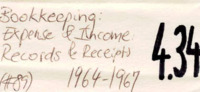 Bookkeeping:
Expense & Income
Records & Receipts
(#87) 1964-1967
4.34